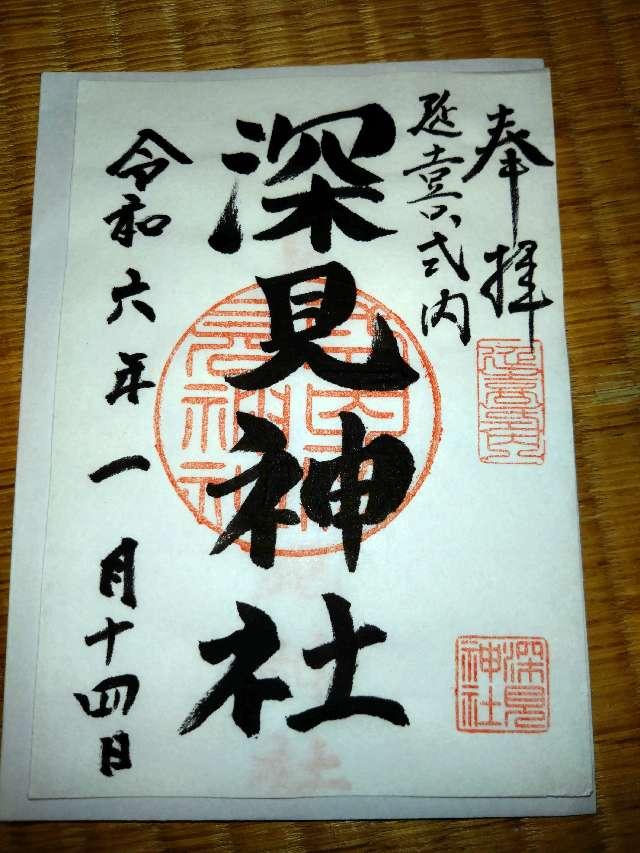 奉拝
延喜式内
深見神社
令和六年一月十四日
延喜式内
深見
神社